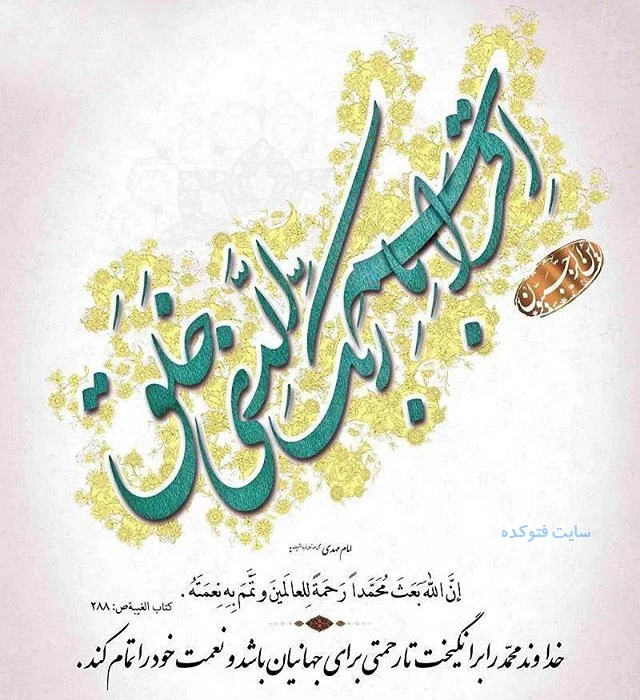 اقرا باسم ربک الَّذی خَلَقَ
سایت فتوکده
امام مهدی
إنَّ اللّٰهَ بَعَثَ مُحَمَّداً رَحمَةً لِلعالَمینَ وَ تَمَّمَ بِهِ نِعمَتَهُ .
کتاب الغیبة ص: ۲۸۸
خداوند محمّد را برانگیخت تا رحمتی برای جهانیان باشد و نعمت خود را تمام کند .